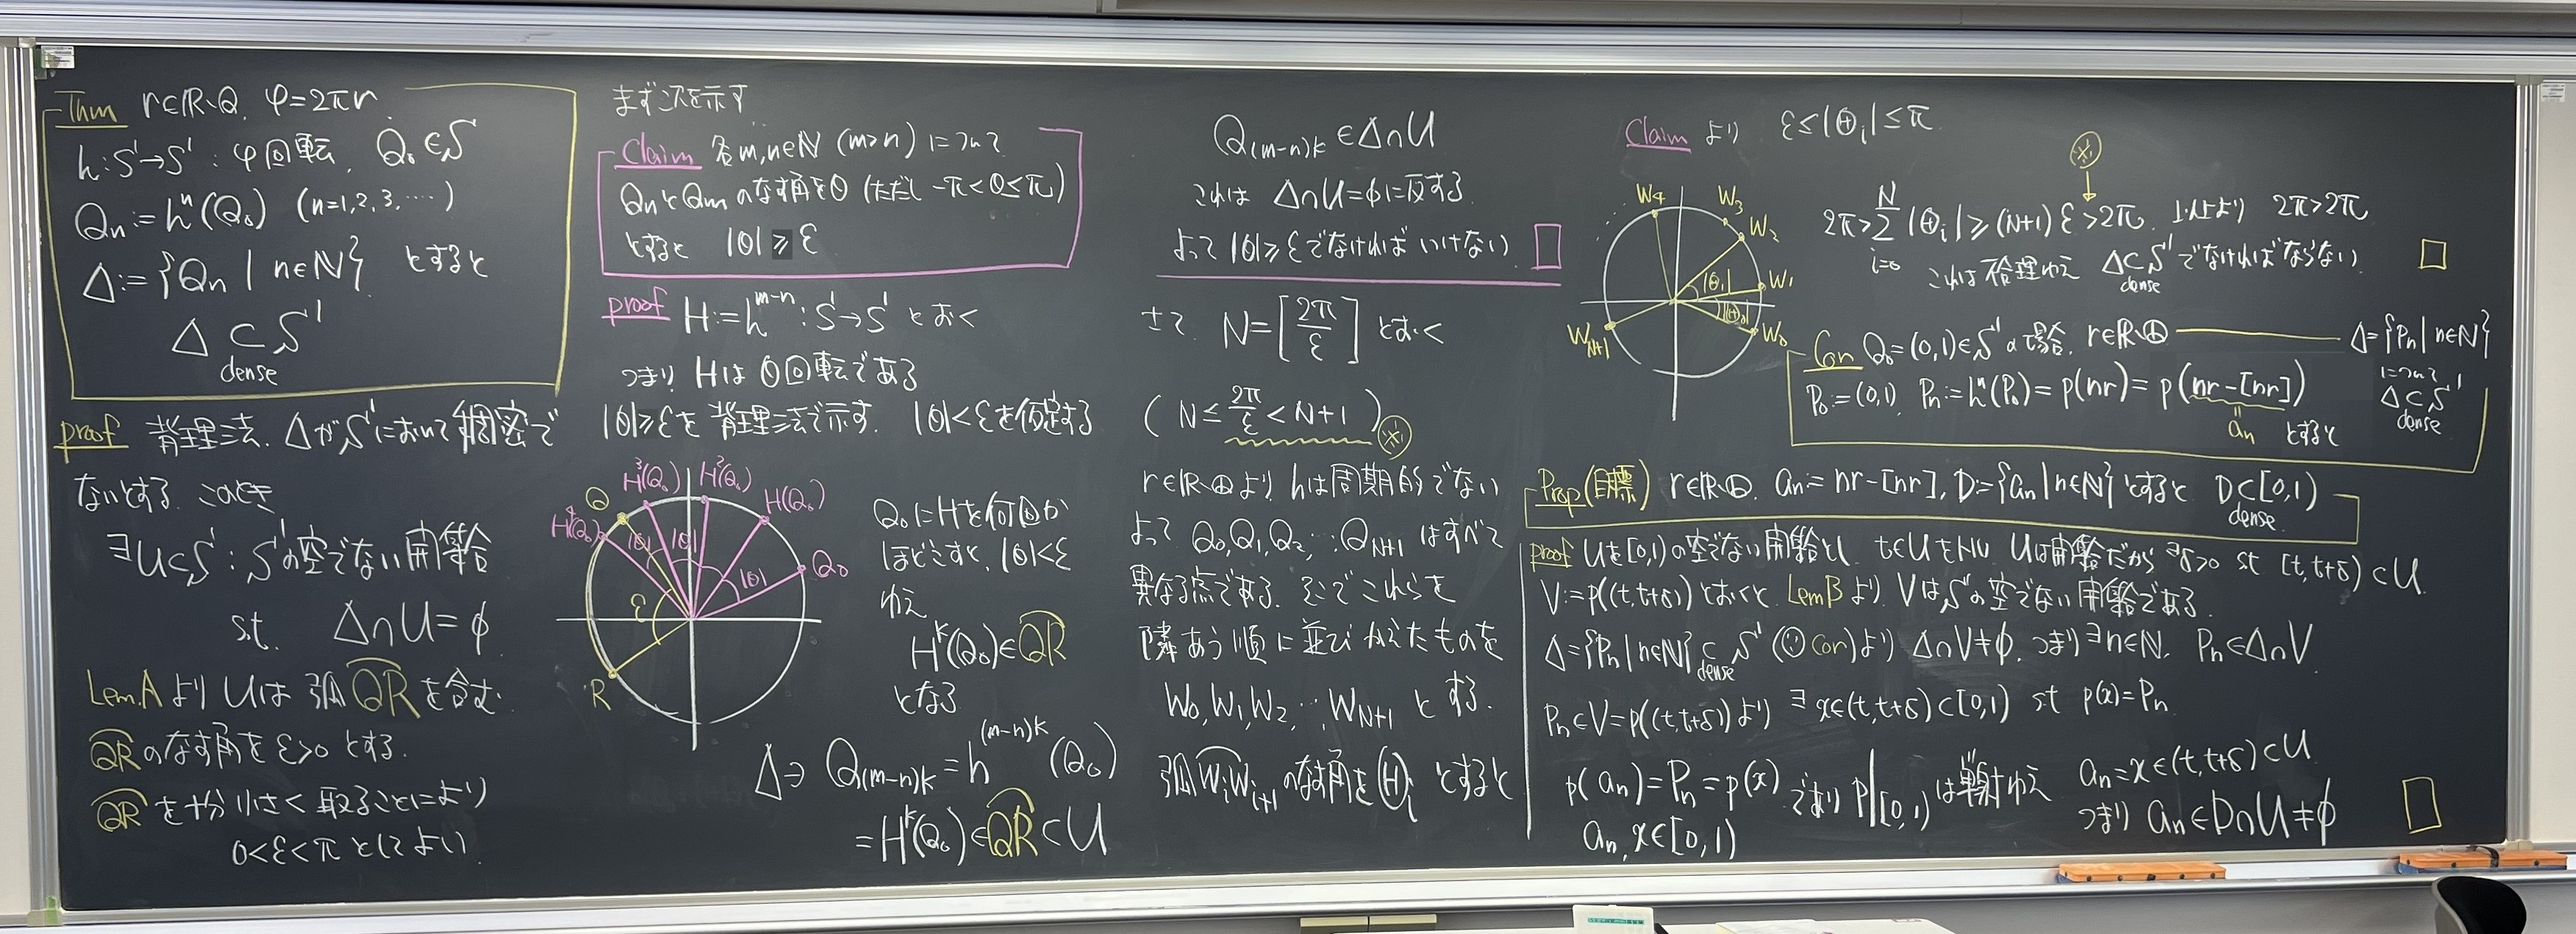 Thm r∈ℝ∖Q. φ=2πr.
h:S¹→S¹ : φ回転. Q₀∈S¹
Qn:=hⁿ(Q₀) (n=1,2,3,‥‥)
Δ:={Qn | n∈ℕ} とすると
Δ ⊂ S¹
dense
proof 背理法. ΔがS¹において稠密で
ないとする. このとき
∃U⊂S¹ : S¹の空でない開集合
s.t. Δ∩U=φ
Lem.A より Uは 弧QRを含む.
QRのなす角を ε>0 とする.
QRを十分小さく取ることにより
0<ε<π としてよい.
まず次を示す
Claim 各m,n∈ℕ (m>n) について
QnとQmのなす角をθ (ただし -π<θ≤π)
とすると |θ|≥ε
proof H:=h^{m-n}:S¹→S¹ とおく
つまり Hは θ回転である
|θ|≥εを 背理法で示す. |θ|<εを仮定する
H⁴(Q₀) Q H³(Q₀) H²(Q₀) H(Q₀)
|θ| |θ| |θ| Q₀
ε
R
Q₀にHを何回か
ほどこすと, |θ|<ε
ゆえ
H^k(Q₀)∈QR
となる
Δ∋ Q_{(m-n)k}=h^{(m-n)k}(Q₀)
=H^k(Q₀)∈QR⊂U
Q_{(m-n)k}∈Δ∩U
これは Δ∩U=φに反する.
よって |θ|≥εでなければいけない. □
さて N=[2π/ε] とおく
(N≤2π/ε<N+1) ※
r∈ℝ∖Qより hは周期的でない
よって Q₀,Q₁,Q₂,‥,Q_{N+1} はすべて
異なる点である. そこでこれらを
隣あう順に並びかえたものを
W₀,W₁,W₂,‥,W_{N+1} とする.
弧WiW_{i+1}のなす角をΘi とすると
Claim より ε≤|Θi|≤π.
W₄ W₃ W₂
W₁
|Θ₁|
|Θ₀|
W₀
W_{N+1}
※
↓
2π>∑_{i=0}^{N}|Θi|≥(N+1)ε>2π. 以上より 2π>2π
これは不合理ゆえ Δ⊂S¹でなければならない. □
dense
Cor Q₀=(0,1)∈S¹の場合. r∈ℝ∖Q Δ={Pn | n∈ℕ}
P₀=(0,1). Pn:=hⁿ(P₀)=p(nr)=p(nr-[nr]) について
=an とすると Δ⊂S¹
dense
Prop(目標) r∈ℝ∖Q. an:=nr-[nr], D:={an | n∈ℕ}とすると D⊂[0,1)
dense
proof Uを[0,1)の空でない開集合とし t∈Uをとる. Uは開集合だから ∃δ>0 st [t,t+δ)⊂U.
V:=p((t,t+δ))とおくと. LemBより VはS¹の空でない開集合である.
Δ={Pn | n∈ℕ}⊂S¹ (∵Cor)より Δ∩V≠φ. つまり∃n∈ℕ. Pn∈Δ∩V
dense
Pn∈V=p((t,t+δ))より ∃x∈(t,t+δ)⊂[0,1) st p(x)=Pn
p(an)=Pn=p(x) であり p|[0,1)は単射ゆえ an=x∈(t,t+δ)⊂U
an,x∈[0,1) つまり an∈D∩U≠φ □